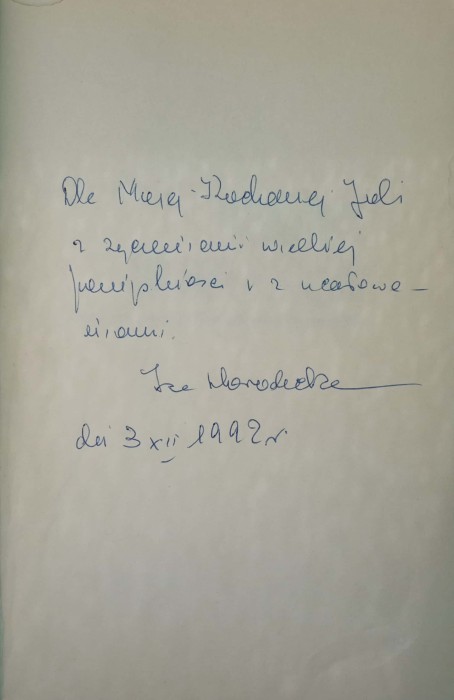 Dla Mojej Kochanej Juli
z życzeniami wielkiej
pomyślności i z ucałowa-
niami.
Iza
dn 3 XII 1992 r